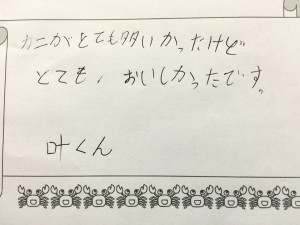 カニがとても多いかったけど
とても、おいしかったです。
叶くん